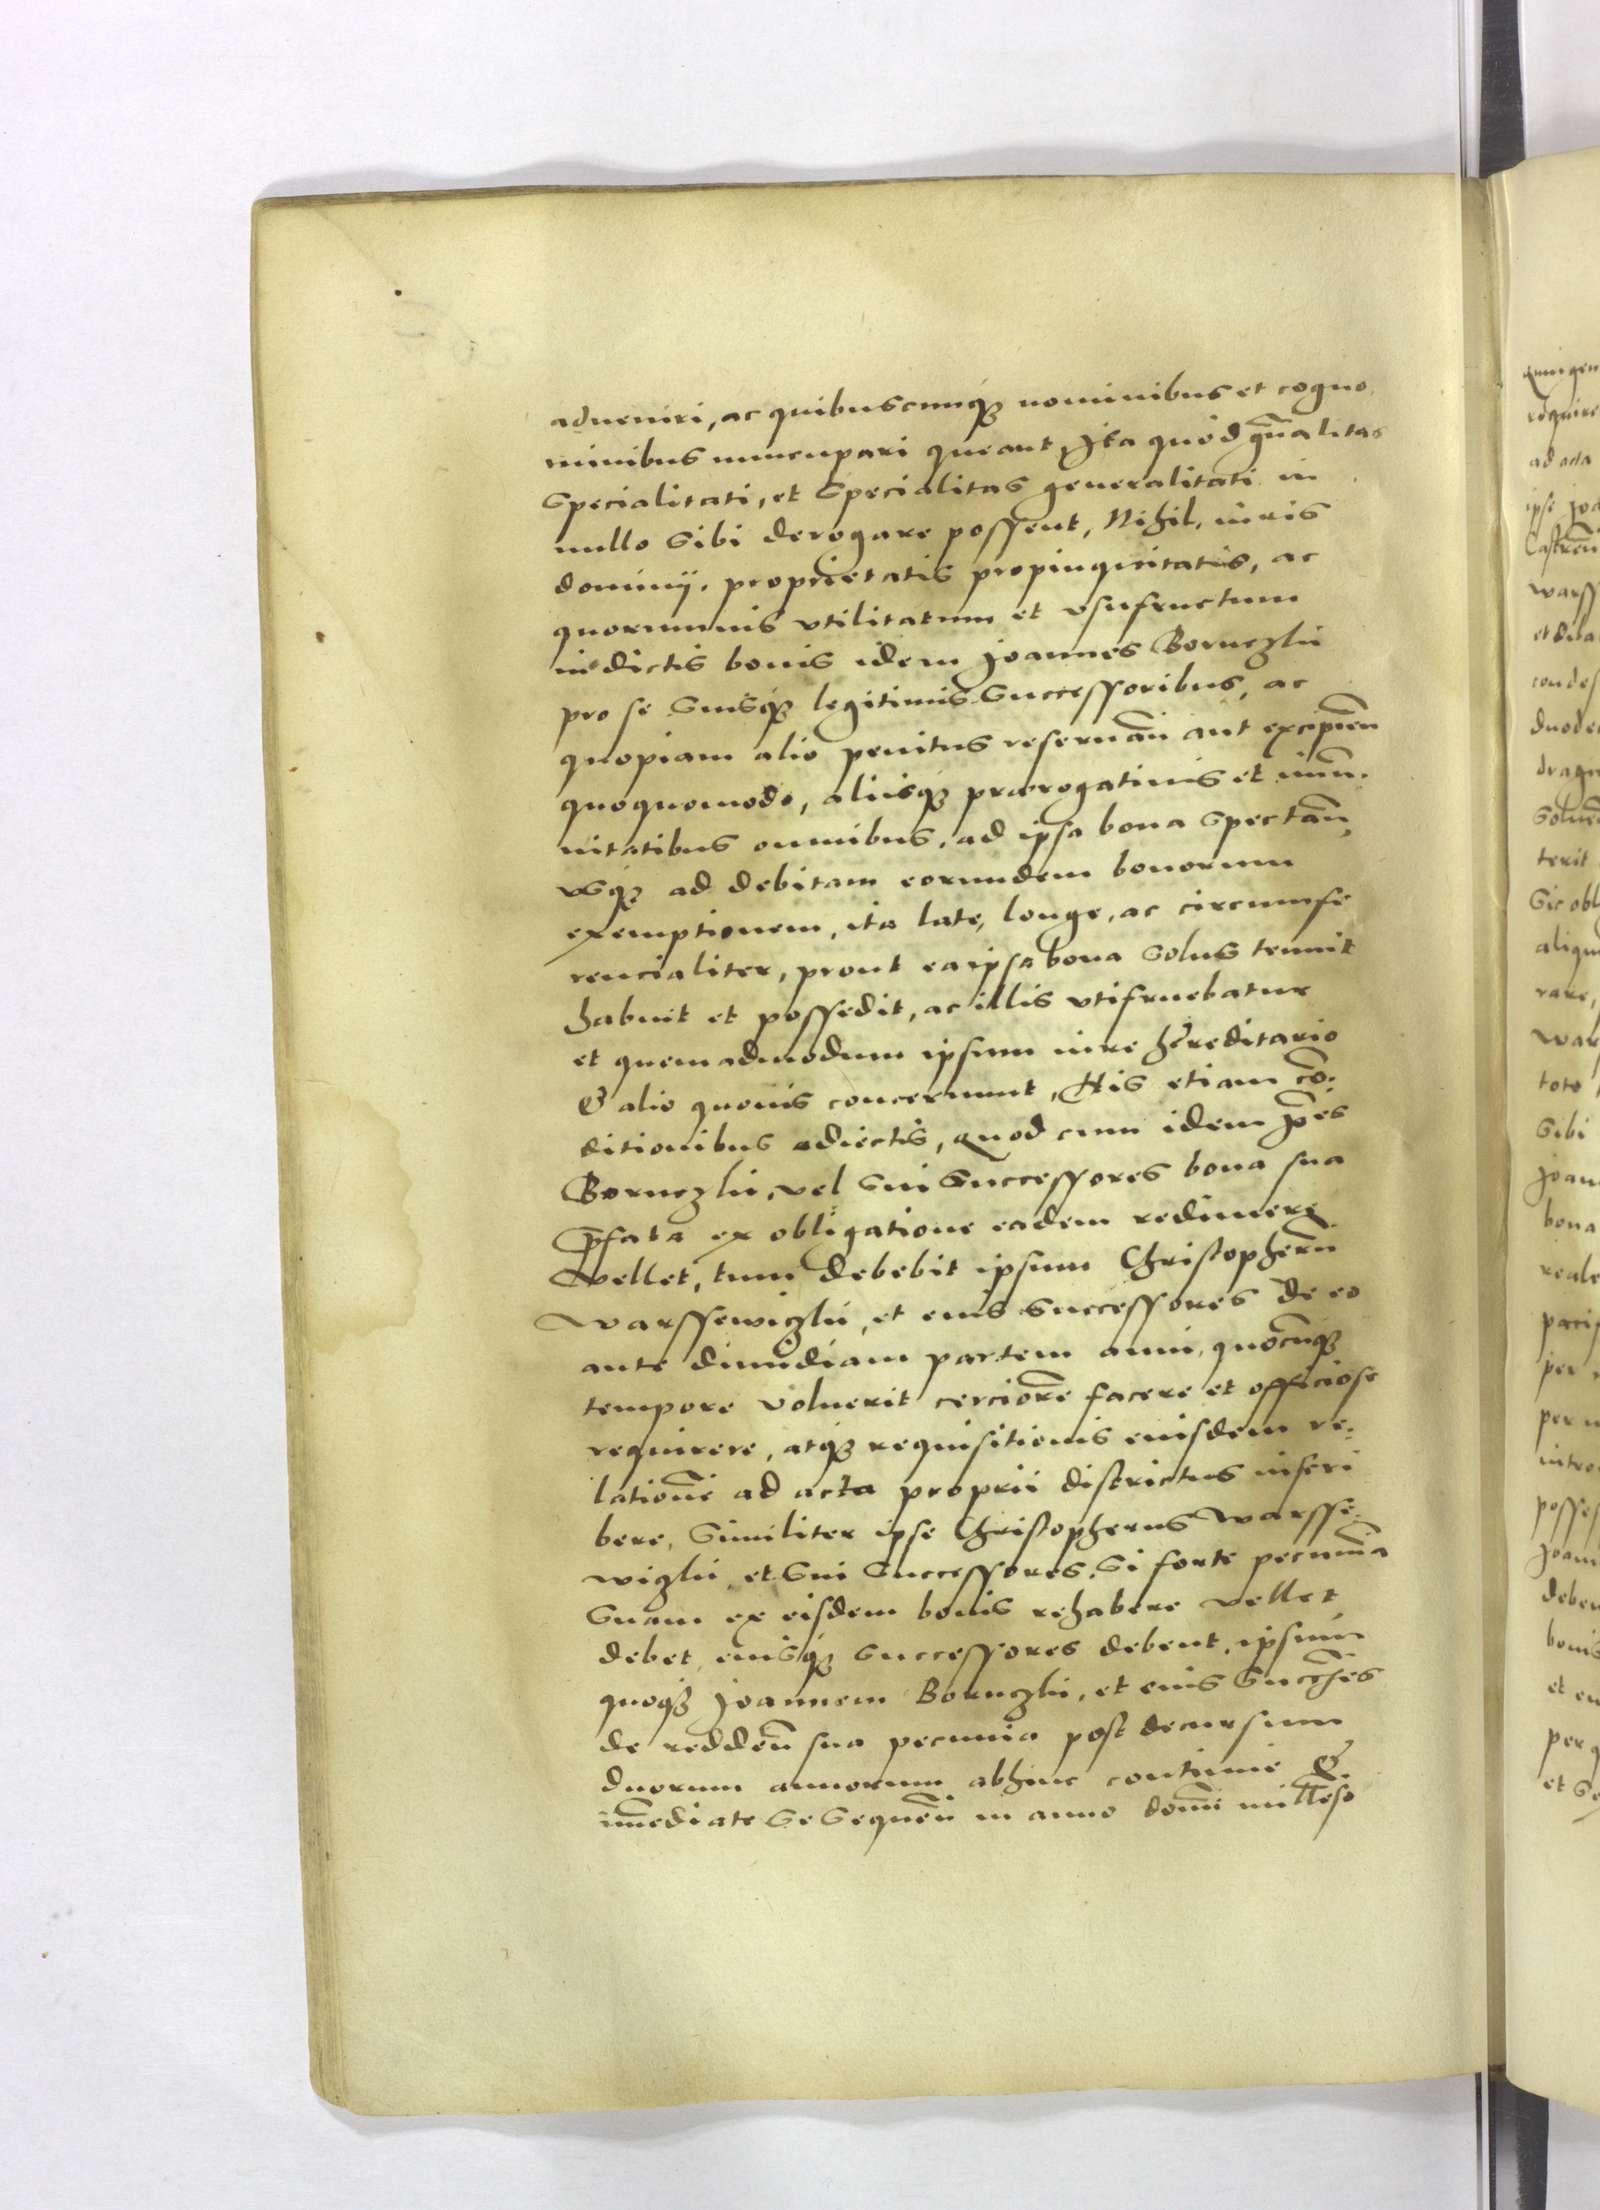 adueniri, ac quibuscunq₃ nominibus et cogno
minibus nuncupari queant, Ita quod gn̄alitas
specialitati, et specialitas generalitati in
nullo sibi derogare possent, Nihil, iuris
dominij, proprietatis propinquitatis, ac
quorumuis vtilitatum et vsufructum
in dictis bonis idem Joannes Boruczkii
pro se suisq₃ legitimis successoribus, ac
quopiam alio penitus reseruan̄ aut excipien̄
quoquomodo, aliisq₃ prærogatiuis et imū
nitatibus omnibus, ad ipsa bona spectan̄,
vsq₃ ad debitam eorundem bonorum
exemptionem, ita late, longe, ac circumfe
rencialiter, prout ea ipsa bona solus tenuit
habuit et possedit, ac illis vtifruebatur
et quemadmodum ipsum iure hęreditario
& alio quouis concernunt, His etiam cō:
ditionibus adiectis, quod cum idem Jo͞es
Boruczkii, vel sui successores bona sua
p͞fata ex obligatione eadem redimere
vellet, tum debebit ipsum Christopherū
Warssewiczkii, et eius successores de eo
ante dimidiam partem anni, quocūq₃
tempore voluerit cerciorē facere et officiose
requirere, atq₃ requisitionis eiusdem re:
lationē ad acta proprii districtus inscri
bere, similiter ipse Christopherus Warsse:
wiczkii, et sui successores, si forte pecuniā
suam ex eisdem bonis rehabere vellet
debet, eiusq₃ successores debent, ipsum
quoq₃ Joannem Boruczkii, et eius succ͞es
de redden̄ sua pecunia post decursum
duorum annorum abhinc continue &
im̄ediate se sequen̄ in anno domī milleso

Quingen
require
ad acta
ipse Joa
Castren̄
Warss